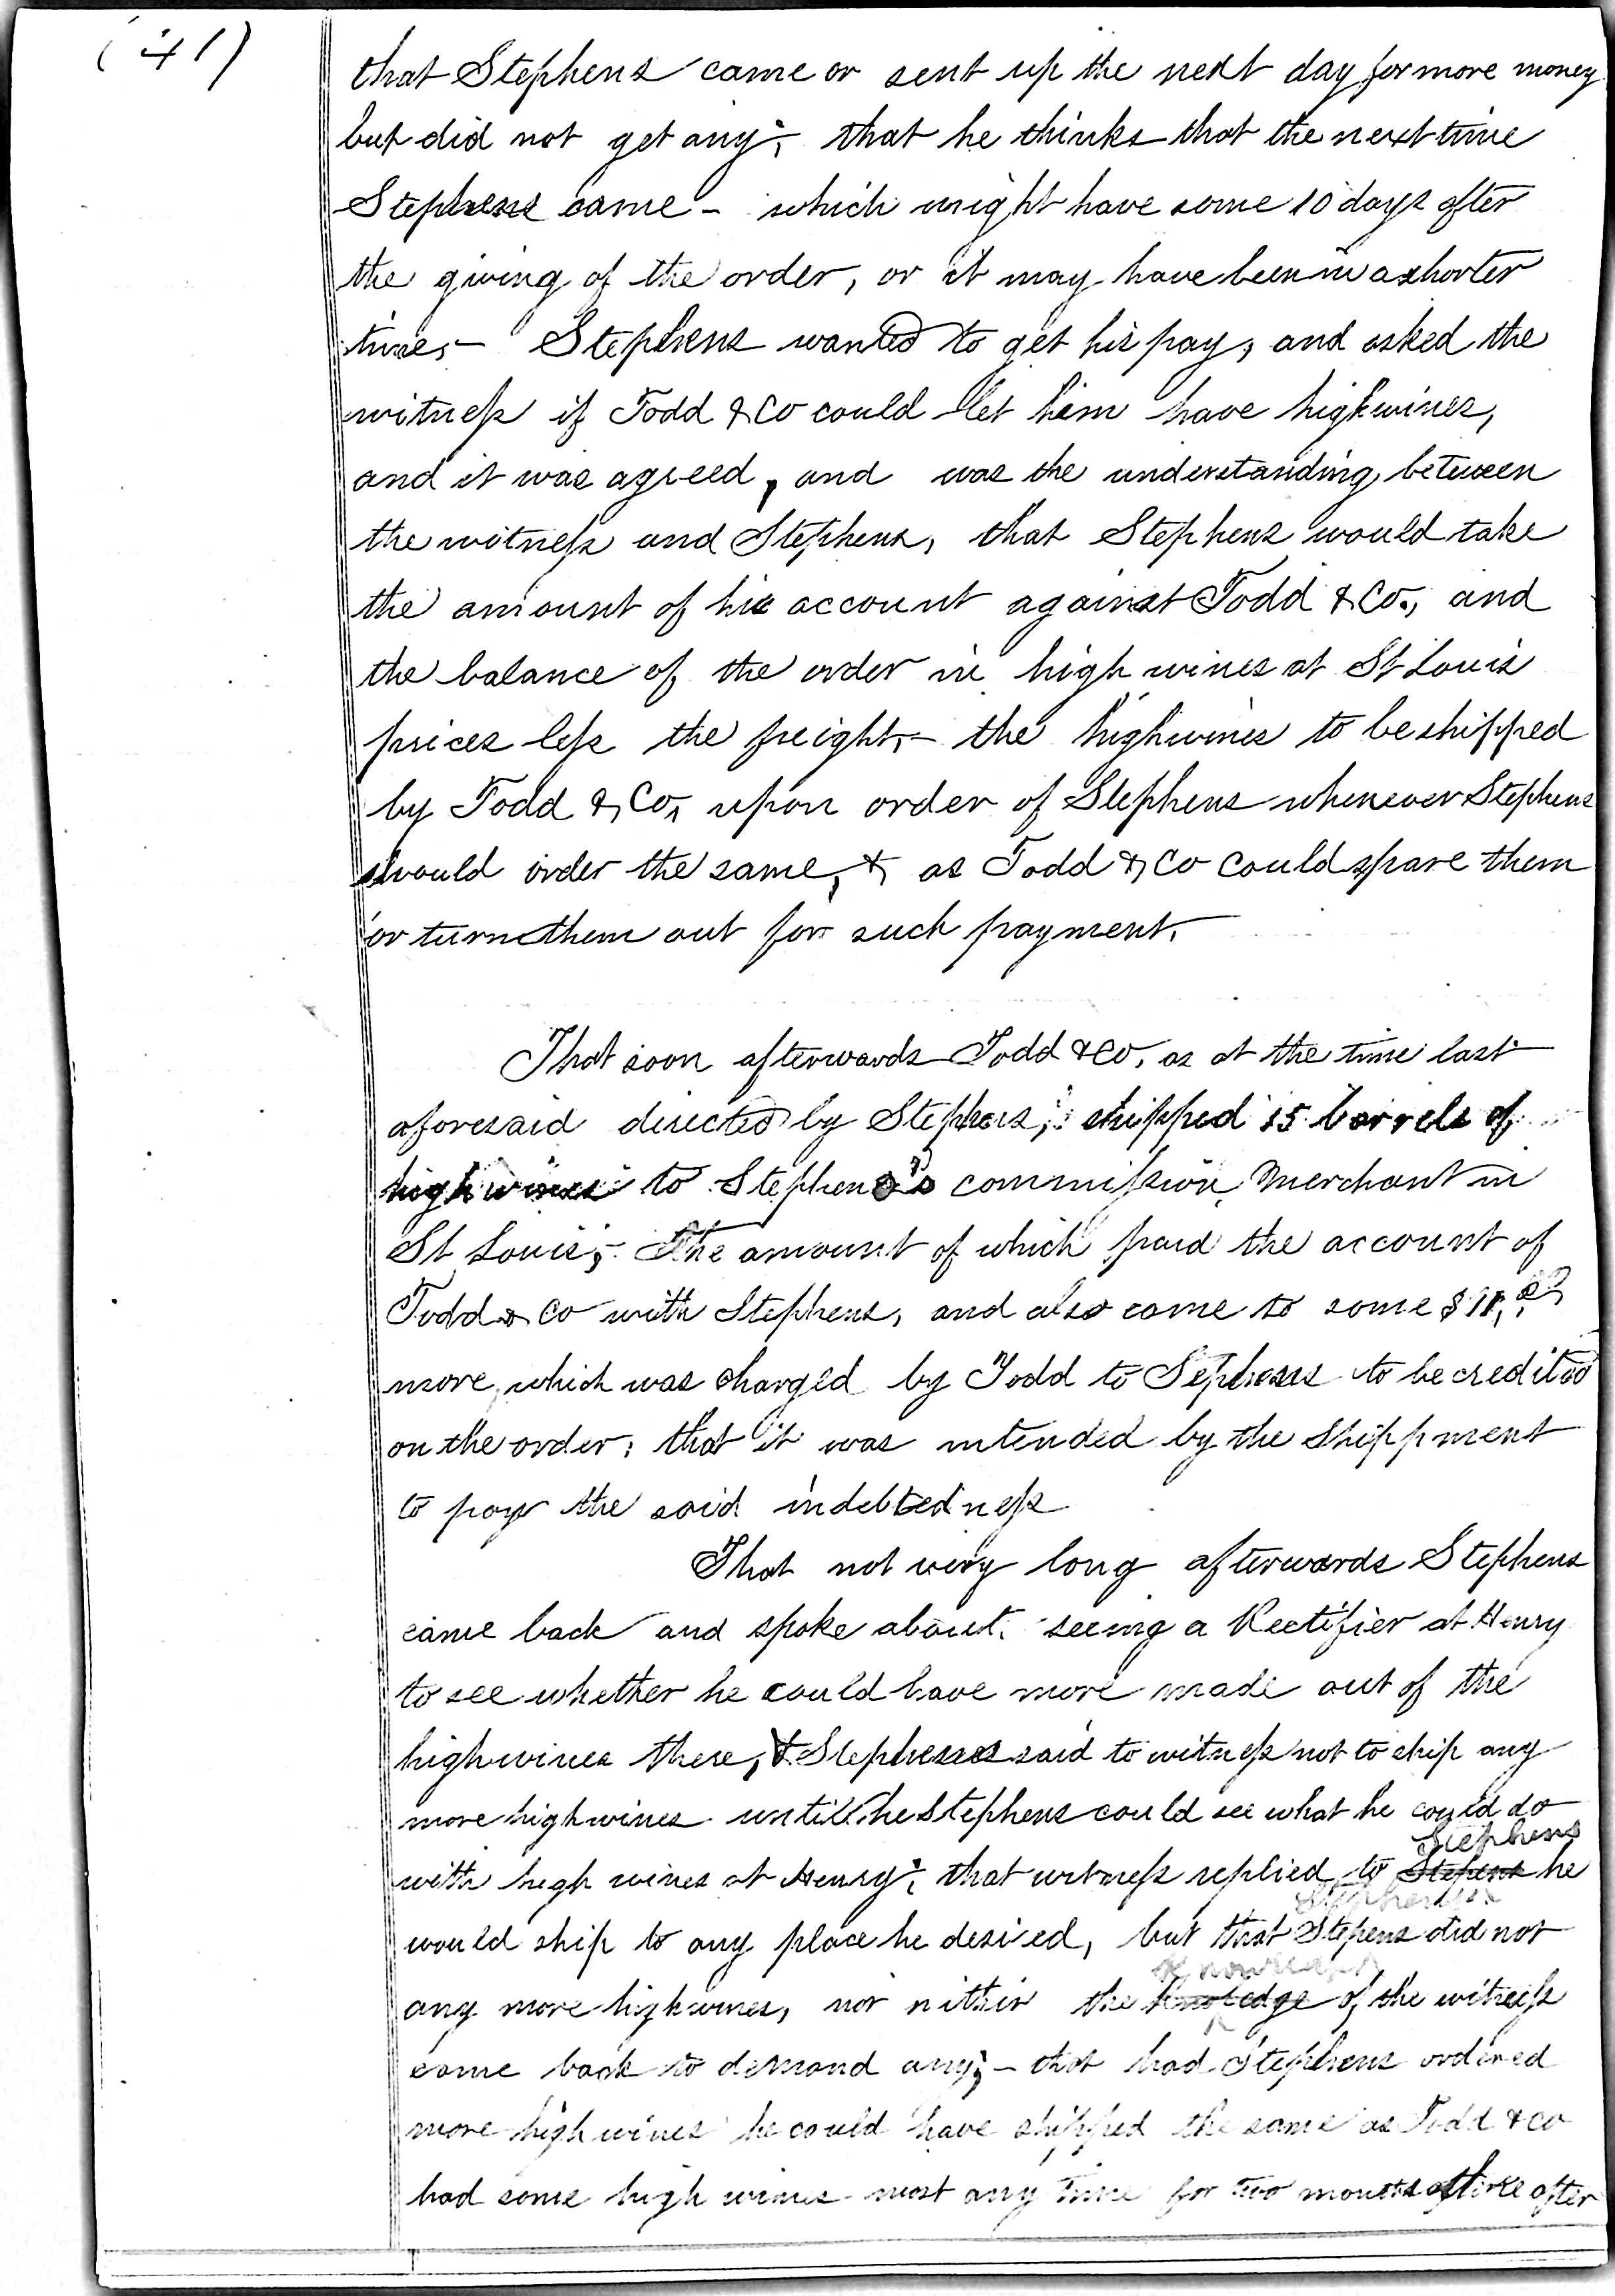 (41)
that Stephens came or sent up the next day for more money
but did not get any; that he thinks that the next time
Stephens came - which might have some 10 days after
the giving of the order, or it may have been in a shorter
time, - Stephens wanted to get his pay, and asked the
witness if Todd & Co could let him have highwines,
and it was agreed, and was the understanding between
the witness and Stephens, that Stephens would take
the amount of his account against Todd & Co., and
the balance of the order in high wines at St Louis
prices less the freight, - the highwines to be shipped
by Todd & Co, upon order of Stephens whenever Stephens
should order the same, & as Todd & Co could spare them
or turn them out for such payment.
That soon afterwards Todd & Co. as at the time last
aforesaid directed by Stephens, shipped 15 barrels of
high wines to Stephens's commission Merchant in
St Louis; - the amount of which paid the account of
Todd & Co with Stephens, and also came to some
more, which was charged by Todd to Sephens to be credited
on the order; that it was intended by the shippment
to pay the said indebtedness
That not very long afterwards Stephens
came back and spoke about seeing a Rectifier at Henry
to see whether he could have more made out of the
highwines there, & Stephens said to witness not to ship any
more highwines untill he Stephens could see what he could do
with high wines at Henry; that witness replied to Stephens he
would ship to any place he desired, but that Stephens did not
any more highwines, nor nithin the knowledge of the witness
come back to demand any; - that had Stephens ordered
more high wines he could have shipped the same as Todd & Co
had some high wines most any time for two months after